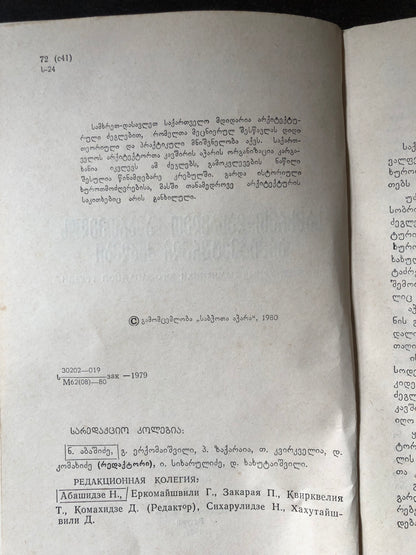 72 (с41)
ს-24
სამხრეთ-დასავლეთ საქართველო მდიდარია არქიტექტუ-
რული ძეგლებით, რომელთა მეცნიერულ შესწავლას დიდი
თეორიული და პრაქტიკული მნიშვნელობა აქვს. საქართ-
ველოს არქიტექტორთა კავშირის აჭარის ორგანიზაცია კარგა-
ხანია იკვლევს ამ ძეგლებს, გამოკვლევების ნაწილი
შესულია წინამდებარე კრებულში. გარდა ისტორიული
ხუროთმოძღვრებისა, მასში თანამედროვე არქიტექტურის
საკითხებიც არის განხილული.
© გამომცემლობა „საბჭოთა აჭარა“, 1980
30202—019
ს
зак —1979
М62(08)—80
სარედაქციო კოლეგია:
ნ. აბაშიძე, გ. ერქომაიშვილი, პ. ზაქარაია, თ. კვირკველია, დ.
კომახიძე (რედაქტორი), ი. სიხარულიძე, დ. ხახუტაიშვილი.
РЕДАКЦИОННАЯ КОЛЕГИЯ:
Абашидзе Н., Еркомайшвили Г., Закарая П., Квирквелия
Т., Комахидзе Д. (Редактор), Сихарулидзе Н., Хахутайш-
вили Д.